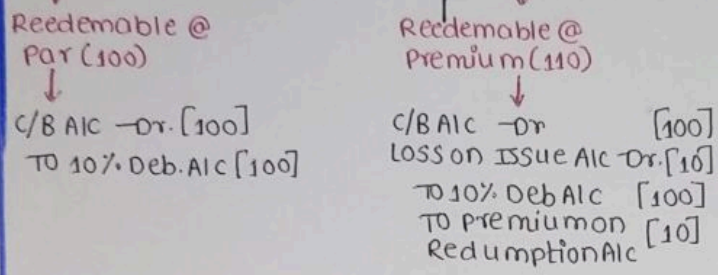 Reedemable @
Par (100)
↓
C/B A/C —Dr. [100]
TO 10% Deb. A/C [100]
Reedemable @
Premium (110)
↓
C/B A/C —Dr [100]
LOSS ON ISSUE A/C Dr. [10]
TO 10% Deb A/C [100]
TO Premium on [10]
Redumption A/C